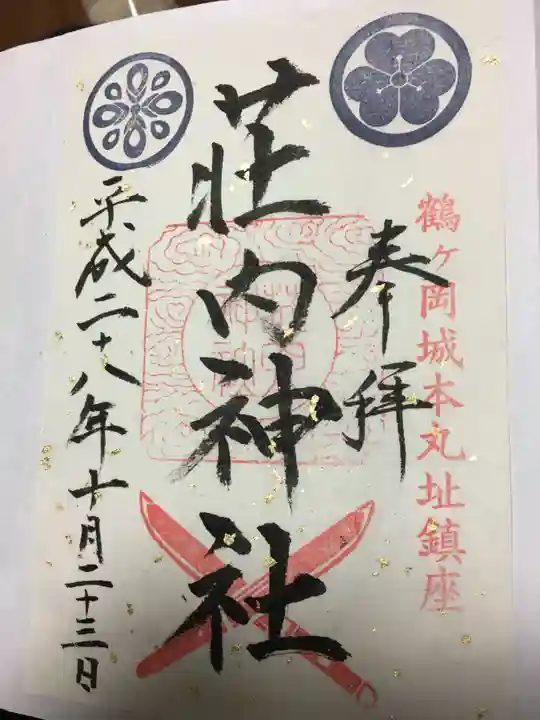 鶴ヶ岡城本丸址鎮座
奉拝
荘内神社
平成二十八年十月二十三日